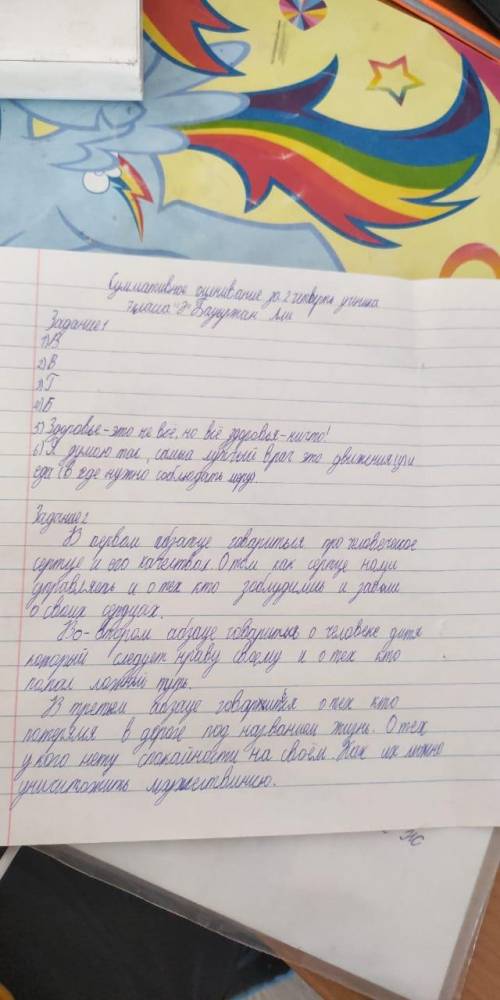 Суммативное оценивание за 2 четверть ученика
7 класса "Э" Бауыржан Али
Задание 1
1) В
2) В
3) Г
4) Б
5) Здоровье - это не всё, но всё здоровья - ничто!
6) Я думаю так, самый лучший врач это движения и
еда (в еде нужно соблюдать меру).
Задание 2
В первом абзаце говариться про человеческое
сертце и его качествах. О том как сертце нами
управляеть и о тех кто заблудились и забыли
о своих сердцах.
Во-втором абзаце говариться о человеке дитя
который следует нраву своему и о тех кто
попал ложный путь.
В третьем абзаце говариться о тех кто
потерялся в дороге под названием жизнь. О тех
у кого нету спокайности на своём. Как их можно
уничтожить мужествинию.